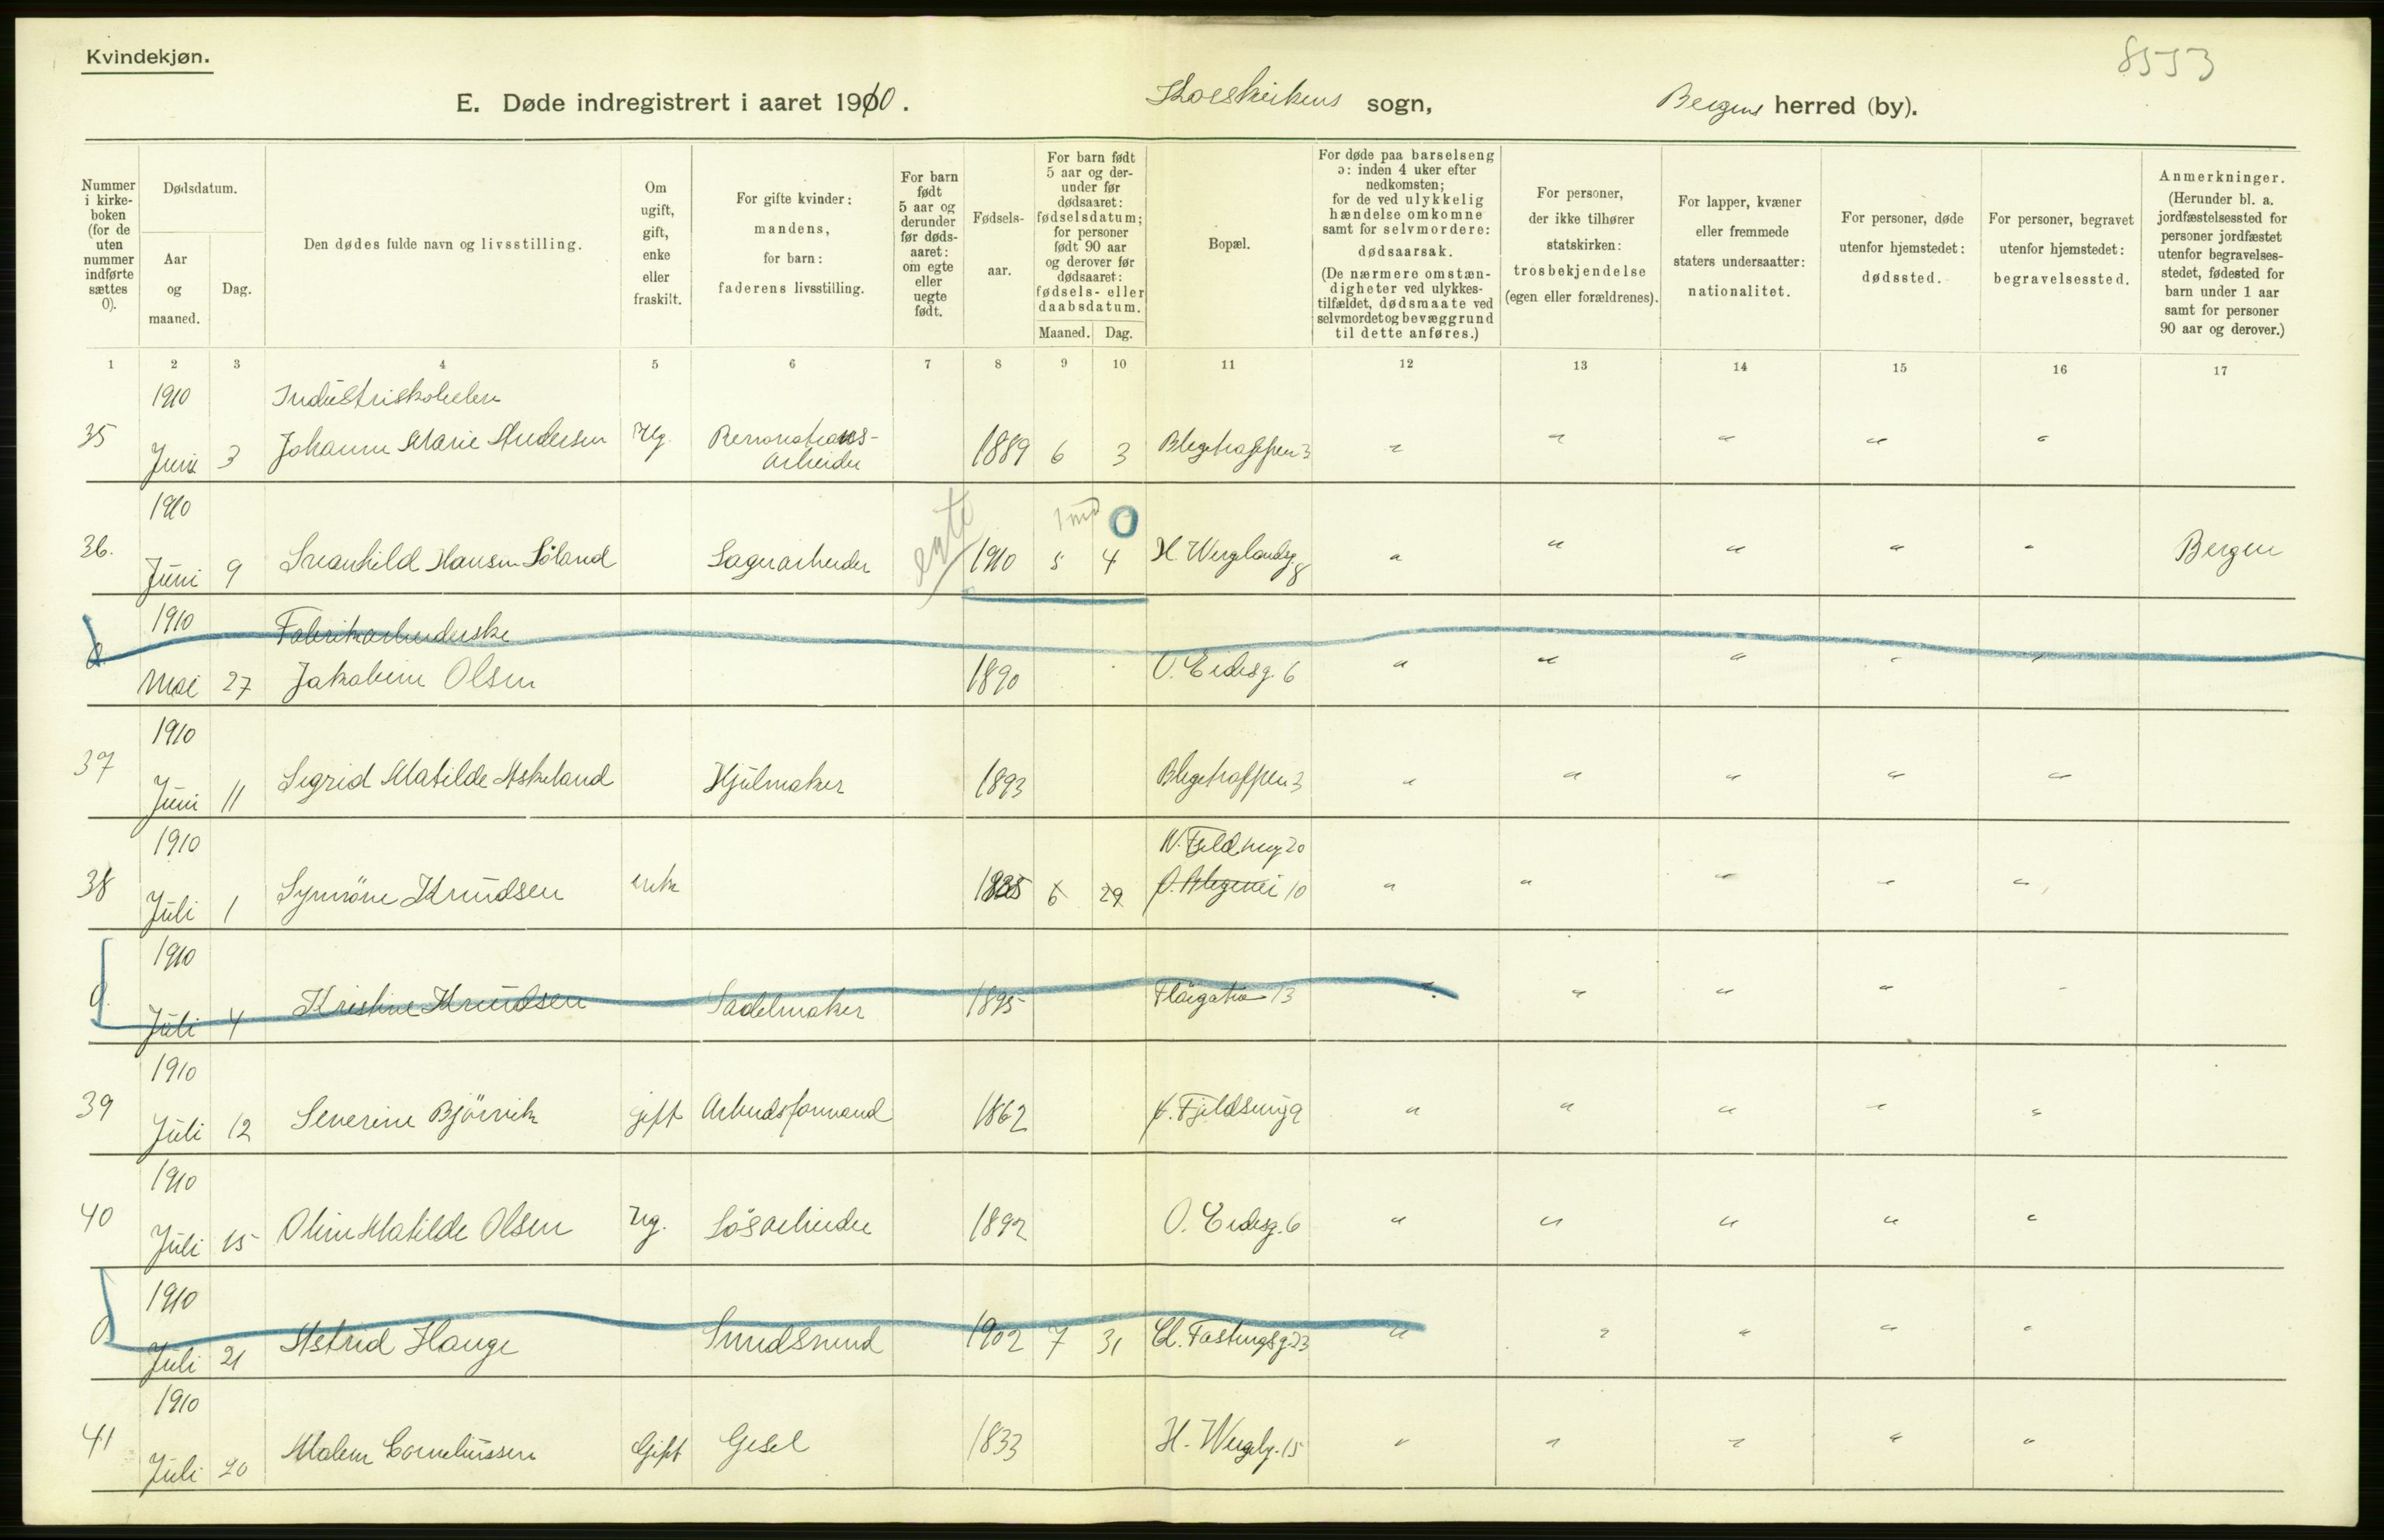 Kvindekjøn.
8553
E. Døde indregistrert i aaret 1910. Korskirkens sogn, Bergens herred (by).
Nummer i kirke-boken (for de uten nummer indførte sættes 0).
Dødsdatum.
Aar og maaned.
Dag.
Den dødes fulde navn og livsstilling.
Om ugift, gift, enke eller fraskilt.
For gifte kvinder: mandens, for barn: faderens livsstilling.
For barn født 5 aar og derunder før døds-aaret: om egte eller uegte født.
Fødsels-aar.
For barn født 5 aar og der-under før dødsaaret: fødselsdatum; for personer født 90 aar og derover før dødsaaret: fødsels- eller daabsdatum.
Maaned. Dag.
Bopæl.
For døde paa barselseng ɔ: inden 4 uker efter nedkomsten; for de ved ulykkelig hændelse omkomne samt for selvmordere: dødsaarsak. (De nærmere omstæn-digheter ved ulykkes-tilfældet, dødsmaate ved selvmordet og bevæggrund til dette anføres.)
For personer, der ikke tilhører statskirken: trosbekjendelse (egen eller forældrenes).
For lapper, kvæner eller fremmede staters undersaatter: nationalitet.
For personer, døde utenfor hjemstedet: dødssted.
For personer, begravet utenfor hjemstedet: begravelsessted.
Anmerkninger. (Herunder bl. a. jordfæstelsessted for personer jordfæstet utenfor begravelses-stedet, fødested for barn under 1 aar samt for personer 90 aar og derover.)
1 2 3 4 5 6 7 8 9 10 11 12 13 14 15 16 17
1910 Industriskoleelev
35 Juni 3 Johanne Marie Andersen Ug. Renovations-arbeider 1889 6 3 Blegetrappen 3 " " " " "
1910 1 md 0
36. Juni 9 Svanhild Hansen Söland Lagerarbeider egte 1910 5 4 H. Wergelandsg. 8 " " " " " Bergen
1910 Fabrikarbeiderske
0 Mai 27 Jakobine Olsen 1890 O. Eidesg. 6 " " " " "
1910
37 Juni 11 Sigrid Matilde Askeland Hjulmaker 1893 Blegetrappen 3 " " " " "
1910 N. Fjeldsmug 20
38 Juli 1 Synnöve Knudsen enke 6 29 10 " " " " "
1910
0. Juli 4 Kristine Knudsen Sadelmaker 1895 Flöigaten 13 " " " " "
1910
39 Juli 12 Severine Björnvik gift Arbeidsformand 1862 Fjeldsmug 9 " " " " "
1910
40 Juli 15 Oline Matilde Olsen Ug. Lösarbeider 1892 O. Eidesg. 6 " " " " "
1910
0 Juli 21 Astrid Hauge 1902 7 31 Cl. Fastingsg. 23 " " " " "
1910
41 Juli 20 Malene Corneliussen Gift 1833 H. Wergelg. 15 " " " " "